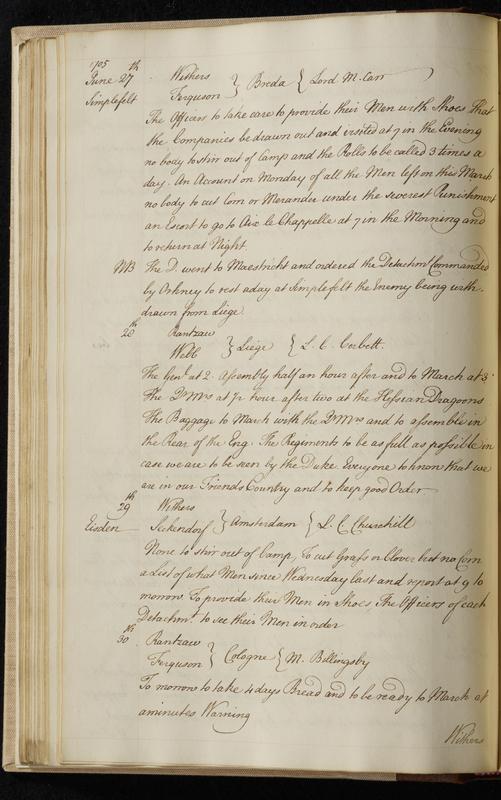 1705
June 27th Withers
Ferguson } Breda { Lord M. Carr
Simplefelt
The Officers to take care to provide their Men with Shoes that
the Companies be drawn out and visited at 7 in the Evening
no body to stirr out of Camp and the Rolls to be called 3 times a
day. An Account on Monday of all the Men left on this March
no body to cut Corn or Merauder under the severest Punishment
an Escort to go to Aix le Chappelle at 7 in the Morning and
to return at Night.
NB The D. went to Maestricht and ordered the Detachmt. Commanded
by Orkney to rest a day at Simplefelt the Enemy being with-
drawn from Liége.
28th Rantzaw
Webb } Liége { L. C. Corbett.
The Genl. at 2. Assembly half an hour after and to March at 3
The Qr. Mrs. at ½ hour after two at the Hessian Dragoons
The Baggage to March with the Qr. Mrs. and to assemble in
the Rear of the Eng. The Regiments to be as full as possible in
case we are to be seen by the Duke. Everyone to know that we
are in our Friends Country and to keep good Order
29th Withers
Eisden Seckendorf } Amsterdam { L. C. Churchill
None to stirr out of Camp, To cut Grass or Clover but no Corn
a List of what Men since Wednesday last and report at 9 to
morrow To provide their Men in Shoes, The Officers of each
Detachmt. to see their Men in order
30th Rantzaw
Ferguson } Cologne { M. Billingsby
To morrow to take 4 days Bread and to be ready to March at
a minutes Warning
Withers